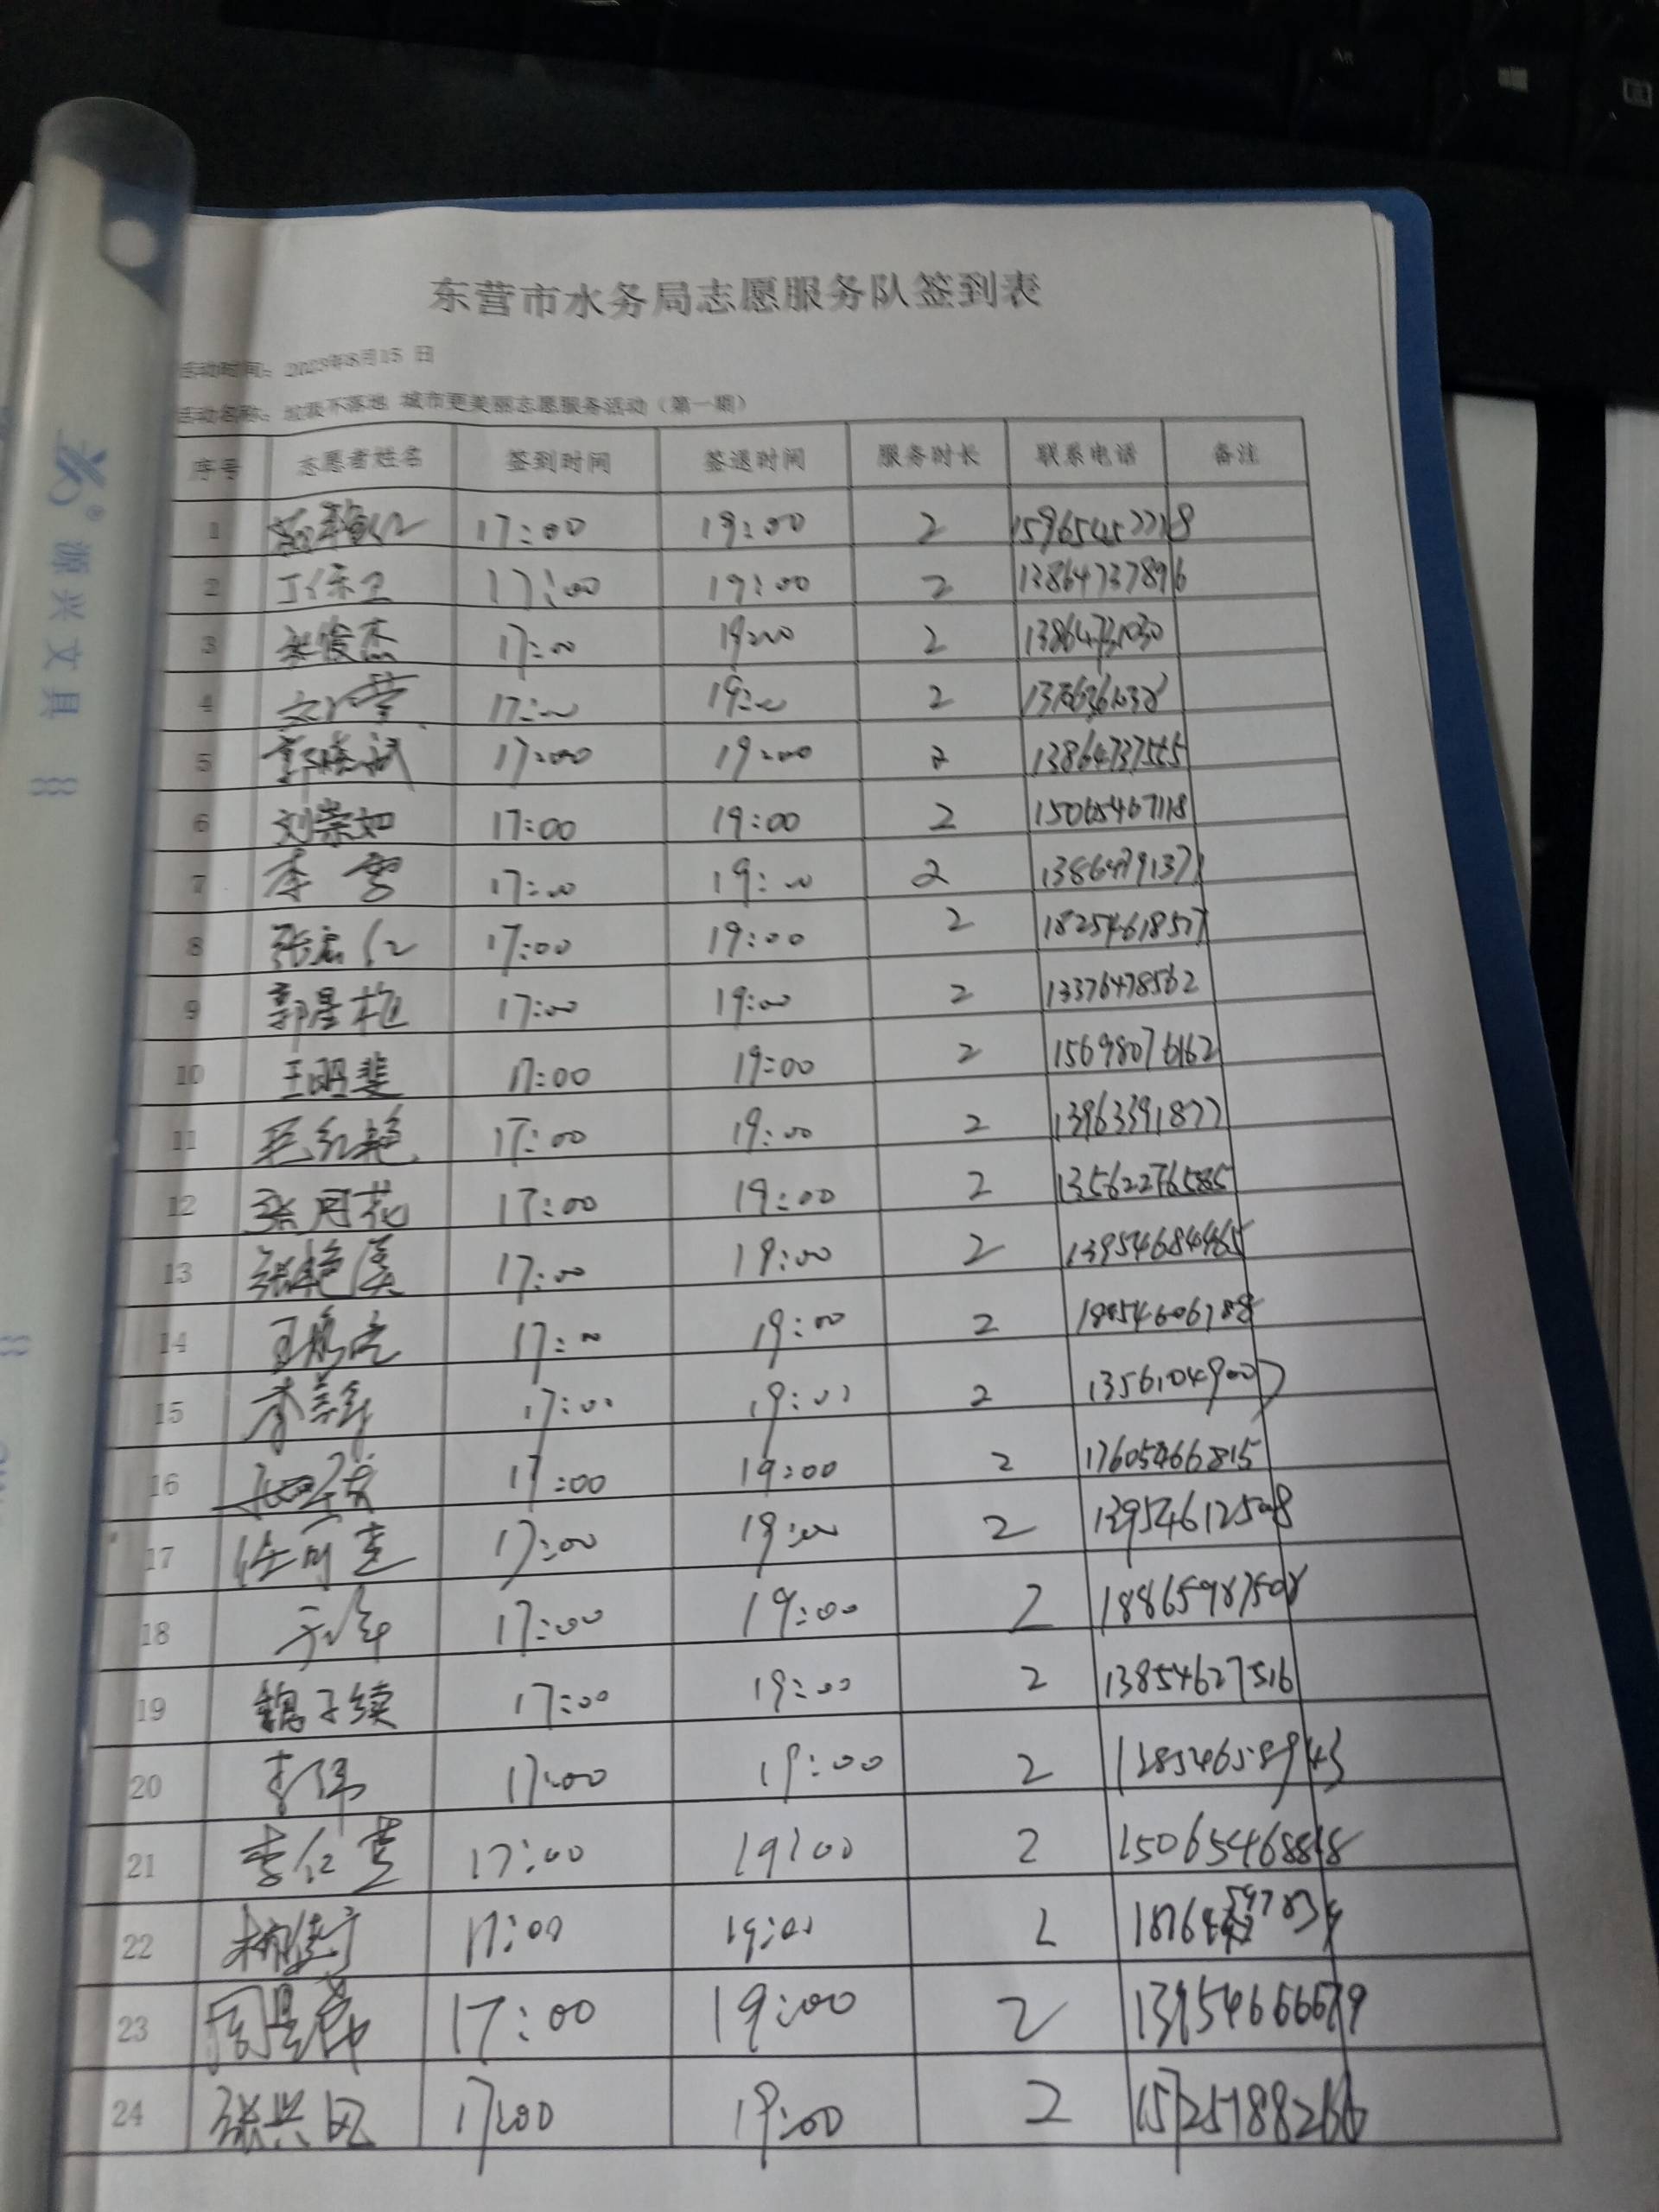 东营市水务局志愿服务队签到表
活动时间：2023年8月15 日
活动名称：垃圾不落地 城市更美丽志愿服务活动（第一期）
序号 志愿者姓名 签到时间 签退时间 服务时长 联系电话 备注
1 17:00 19:00 2
2 丁保卫 17:00 19:00 2 13864737896
3 17:00 19:00 2 13864731030
4 17:00 19:00 2
5 郭晓斌 17:00 19:00 2
6 刘崇如 17:00 19:00 2 15065467118
7 李雪 17:00 19:00 2
8 张宏仁 17:00 19:00 2 18254618577
9 郭星艳 17:00 19:00 2 13376478562
10 王明斐 17:00 19:00 2 15698076162
11 毛红艳 17:00 19:00 2 13963391877
12 张月花 17:00 19:00 2 13562276585
13 张艳溪 17:00 19:00 2
14 17:00 19:00 2
15 17:00 19:00 2 13561049007
16 17:00 19:00 2 17605466815
17 任可意 17:00 19:00 2 13954612508
18 17:00 19:00 2 18865987508
19 魏子续 17:00 19:00 2 13854627516
20 李伟 17:00 19:00 2 13854658943
21 李仁贵 17:00 19:00 2 15065468818
22 17:00 19:00 2
23 17:00 19:00 2 13954666679
24 张兴国 17:00 19:00 2 15725788266
源兴文具